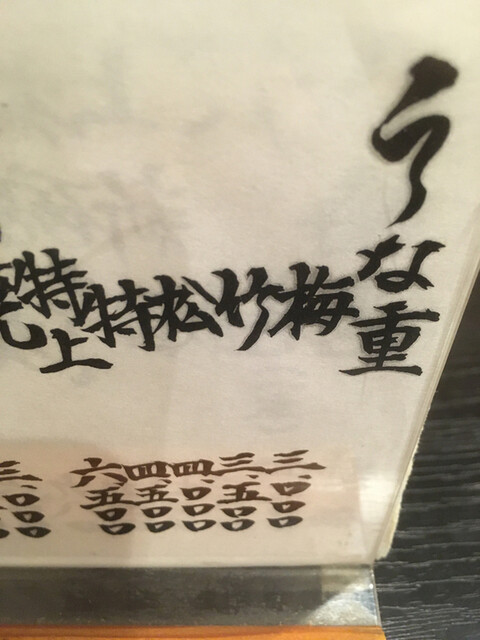 うな重
梅 三、〇〇〇
竹 三、五〇〇
松 四、〇〇〇
特 四、五〇〇
特上 六、五〇〇